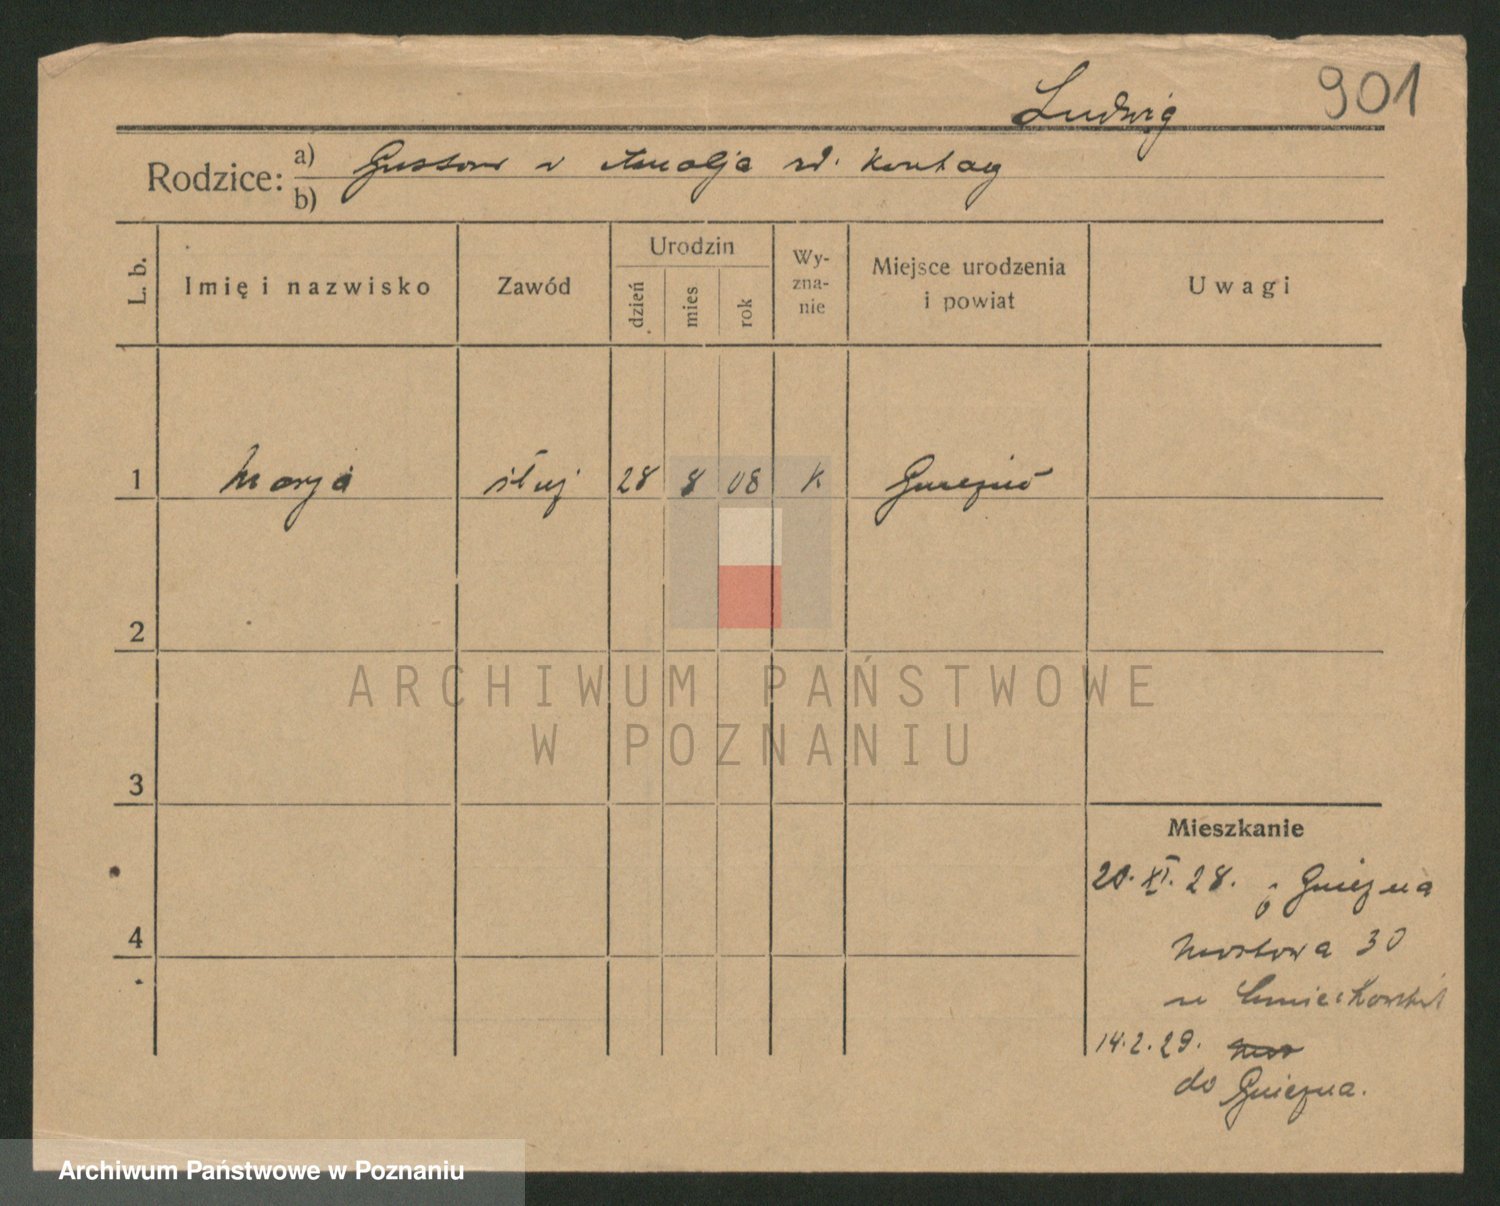 901
Ludwig
Rodzice: a) Gustaw i Amalja rd. Kontag
b)
L. b. Imię i nazwisko Zawód Urodzin dzień mies rok Wy-zna-nie Miejsce urodzenia i powiat Uwagi
1 Marja służ 28 8 08 K Gniezno
2
3
4
Mieszkanie
20. XI. 28. z Gniezna
Mostowa 30
u
14.2.29.
do Gniezna.
ARCHIWUM PAŃSTWOWE
W POZNANIU
Archiwum Państwowe w Poznaniu